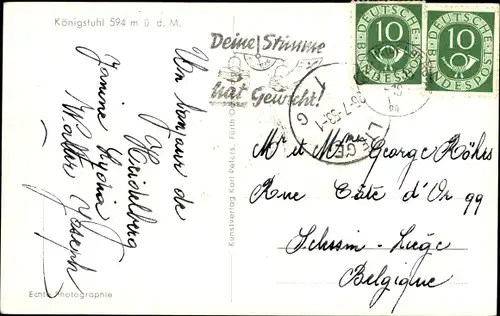 Königstuhl 594 m ü. d. M.
Un bonjour de
Heidelberg
Janine Lydia
Walter Joseph
Echte Photographie
Kunstverlag Karl Peters, Fürth O
Deine Stimme
hat Gewicht!
DEUTSCHE
BUNDESPOST
10
DEUTSCHE
BUNDESPOST
10
Mr et Mme George Röhes
Rue Côte d'Or 99
Liège
Belgique